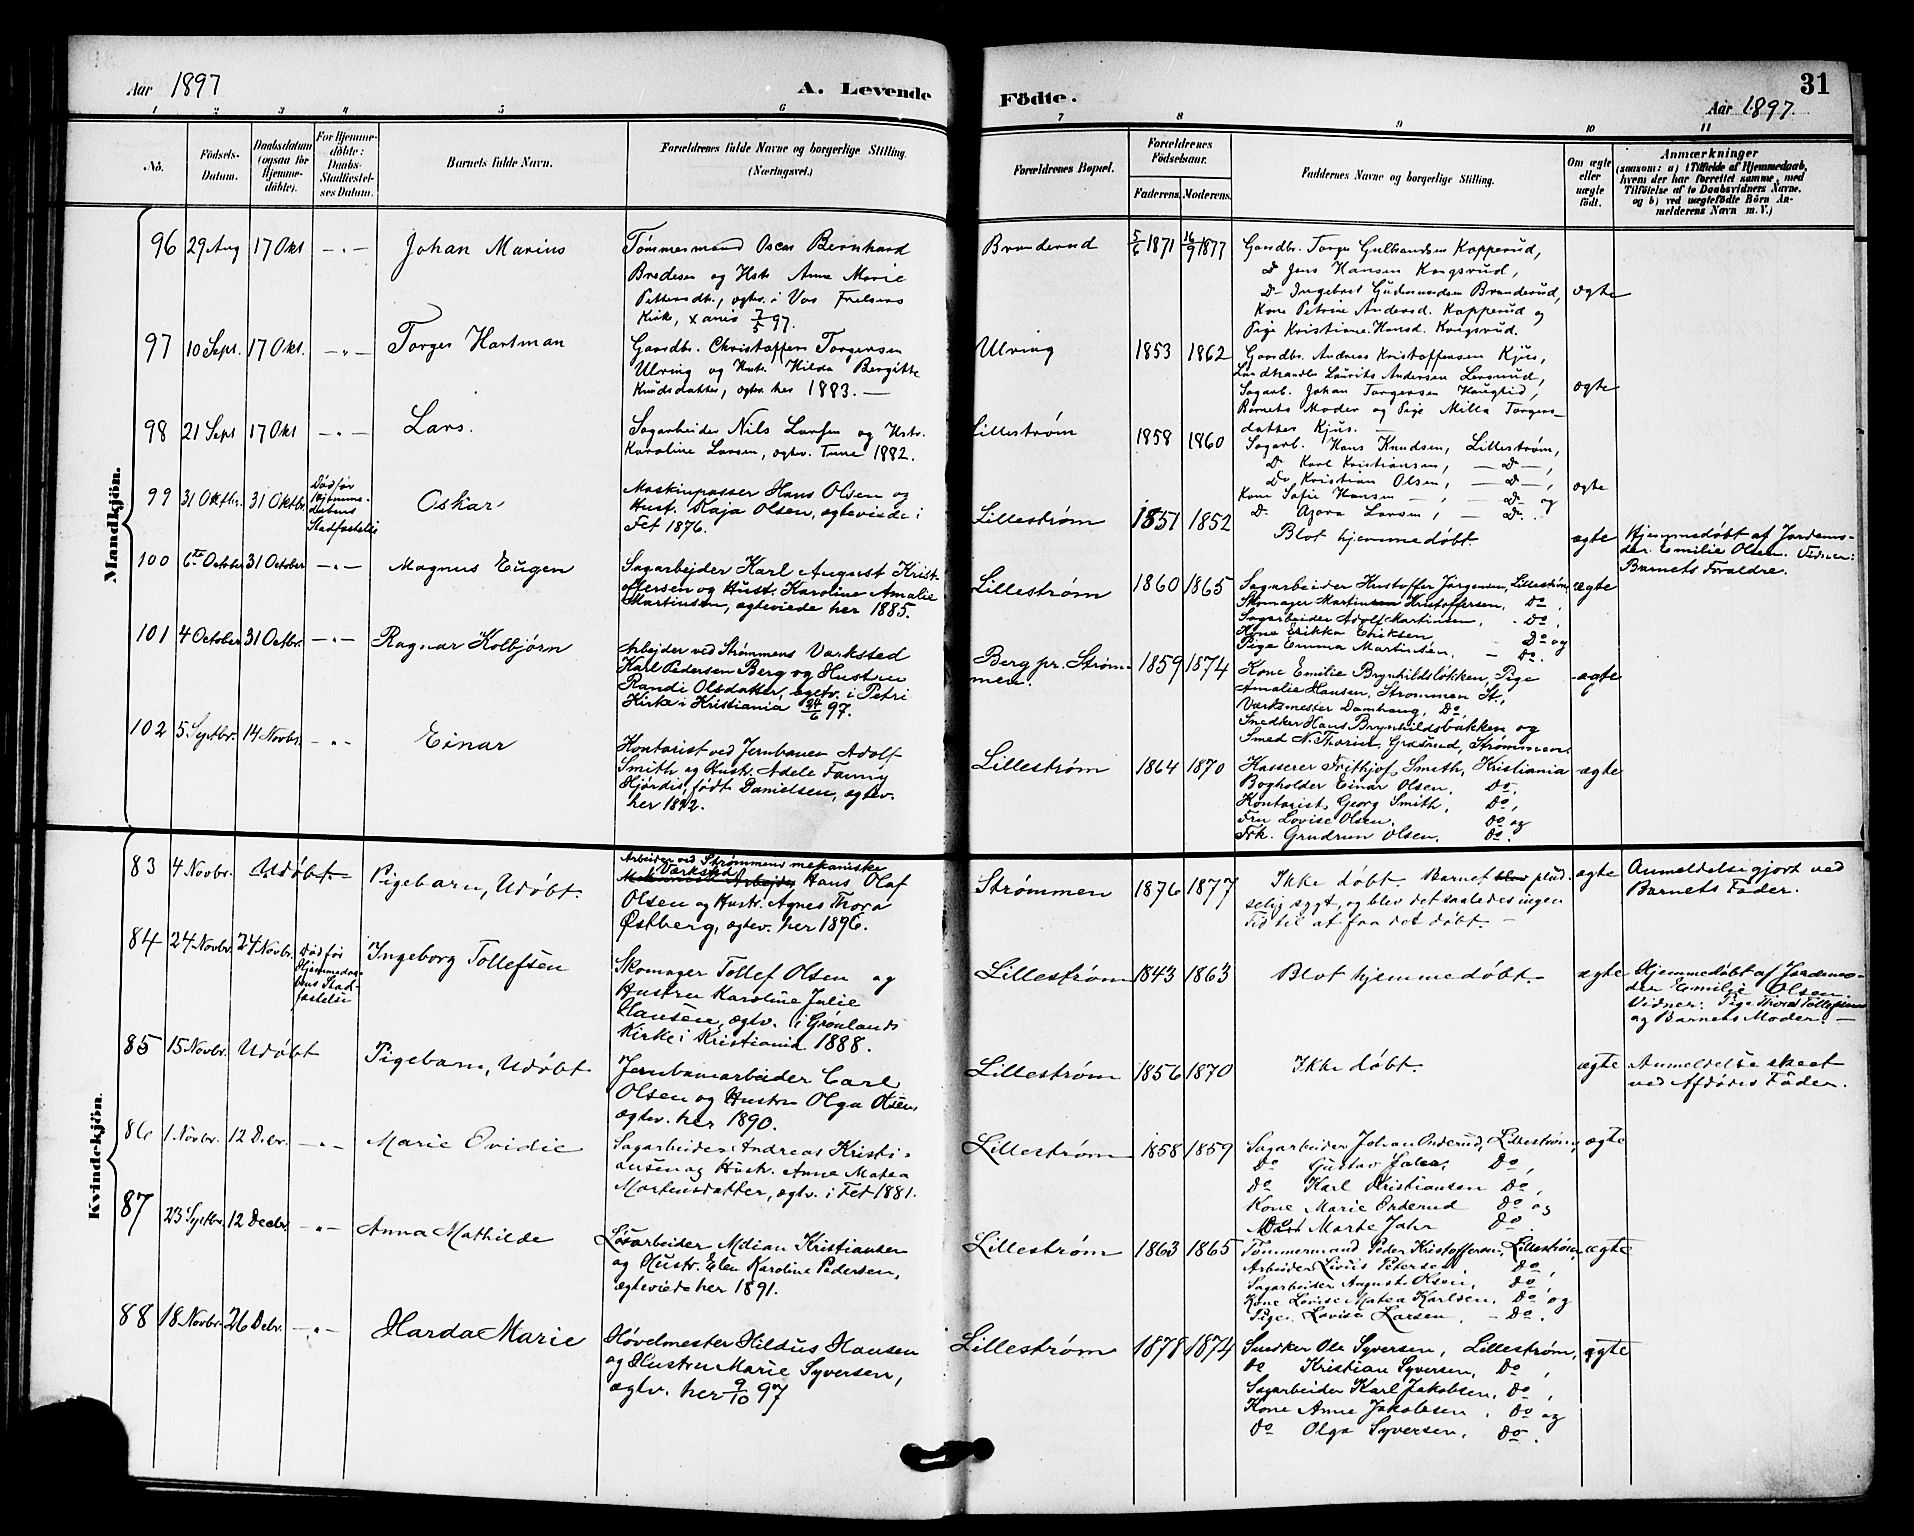 Aar 1897
A. Levende
Födte.
31
Aar 1897.
1 2 3 4 5 6 7 8 9 10 11
No.
Födsels-
Datum.
Daabsdatum
(ogsaa for
Hjemme-
döbte).
For Hjemme-
döbte:
Daabs-
Stadfæstel-
ses Datum.
Barnets fulde Navn.
Forældrenes fulde Navne og borgerlige Stilling.
(Næringsvei.)
Forældrenes Bopæl.
Forældrenes
Födselsaar.
Faderens. Moderens.
Faddernes Navne og borgerlige Stilling.
Om ægte
eller
uægte
født.
Anmærkninger
(saasom: a) i Tilfælde af Hjemmedaab,
hvem der har forrettet samme, med
Tilföielse af to Daabsvidners Navne,
og b) ved uægtefödte Börn An-
melderens Navn m. V.)
Mandkjön.
96 29 Aug 17 Okt - " - Johan Marius
Tømmermand Oscar Bernhard
Bredesen og Hstr. Anna Marie
Pettersdtr., ægtv. i Vor Frelsers
Kirke, Xania 7/5 97.
Branderud 5/6 1871 16/9 1877
Gaardbr. Torger Gulbrandsen Kopperud,
Do Jens Hansen Kongsrud,
Do Ingebret Gudmundsen Branderud,
Kone Petrine Andersd. Kopperud og
Pige Kristiane Hansd. Kongsrud.
ægte
97 10 Sept. 17 Okt. - " - Torger Hartman
Gaardbr. Christoffer Torgersen
Ulving og Hstr. Hilda Bergitte
Knudsdatter, ægtv. her 1883. -
Ulving 1853 1862
Gaardbr. Andreas Kristoffersen Kjus,
Landhandler Laurits Andersen Leirsund,
Sagarb. Johan Torgersen Haugtid,
Barnets Moder og Pige Milla Torgers-
datter Kjus. -
ægte
98 21 Sept 17 Okt - " - Lars.
Sagarbeider Nils Larsen og Hstr.
Karoline Larsen, ægtv. Tune 1882.
Lillestrøm 1858 1860
Sagarb. Hans Knudsen, Lillestrøm,
Do Karl Kristiansen, - D -,
Do Kristian Olsen, - D -,
Kone Sofie Hansen - , - D - og
D. Agora Larsen, - D.
ægte
99 31 Oktbr. 31 Oktbr.
Død før
Hjemme-
daabens
Stadfæstelse
Oskar
Maskinpasser Hans Olsen og
Hust. Kaja Olsen, ægteviede i
Fet 1876.
Lillestrøm 1851 1852
Blot hjemmedøbt.
ægte
Hjemmedøbt af Jordemo-
der Emilie Olsen. Vidner:
Barnets Forældre.
100 6te October 31 October - " - Magnus Eugen
Sagarbejder Karl August Krist-
offersen og Hust. Karoline Amalie
Martinsen, ægteviede her 1885.
Lillestrøm 1860 1865
Sagarbeider Kristoffer Jørgensen, Lillestrøm,
Skomager Martinsen Kristoffersen, Do,
Sagarbeider Adolf Martinsen, Do,
Kone Erikka Eriksen, - Do og
Pige Emma Martinsen, - Do.
ægte
101 4 October 31 Octbr. - " - Ragnar Kolbjørn
Arbejder ved Strømmens Værksted
Karl Pedersen Berg og Hustru
Randi Olsdatter, ægtv. i Petri
Kirke i Kristiania 24/6 97.
Berg pr. Strøm-
men. 1859 1874
Kone Emilie Brynhildsløkken, Pige
Amalie Hansen, Strømmen St.,
Værksmester Damhaug, Do,
Snedker Hans Brynhildsbakken og
Smed N. Thorsen, Græsrud, Strømmen.
ægte
102 5 Septbr. 14 Novbr. - " - Einar
Kontorist ved Jernbanen Adolf
Smith og Hustr. Adele Fanny
Hjørdis, født Danielsen, ægtev.
her 1892.
Lillestrøm 1864 1870
Kasserer Frithjof Smith, Kristiania
Bogholder Einar Olsen, Do.
Kontorist Georg Smith, Do,
Fru Lovise Olsen, Do og
Frk. Grudrun Olsen. Do.
ægte
Kvindekjön.
83 4 Novbr. Udøbt. Pigebarn, Udøbt.
Arbeider ved Strømmens mekaniske
Værksted
Hans Olaf
Olsen og Hustr. Agnes Thora
Østberg, ægtev. her 1896.
Strømmen 1876 1877
Ikke døbt. Barnet blev plud-
selig sygt, og blev det saaledes ingen
Tid til at faa det døbt. -
ægte
Anmeldelse gjort ved
Barnets Fader.
84 24 Novbr. 24 Novbr.
Død før
Hjemmedaa-
bens Stad-
fæstelse
Ingeborg Tollefsen
Skomager Tollef Olsen og
Hustru Karoline Julie
Hansen, ægtv. i Grønlands
Kirke i Kristiania 1888.
Lillestrøm 1843 1863
Blot hjemmedøbt. -
ægte
Hjemmedøbt af Jordemo-
der Emilie Olsen.
Vidner: Pige Thora Tollefsen
og Barnets Moder. -
85 15 Novbr. Udøbt Pigebarn, Udøbt
Jernbanearbeider Carl
Olsen og Hustru Olga Olsen,
ægtev. her 1890.
Lillestrøm 1856 1870
Ikke døbt.
ægte
Anmeldelse skeet
ved Afdødes Fader.
86 1 Novbr. 12 Debr. - " - Marie Ovidie
Sagarbeider Andreas Kristi-
ansen og Hustr. Anne Matea
Mortensdatter, ægtv. i Fet 1881.
Lillestrøm 1858 1859
Sagarbeider Johan Orderud, Lillestrøm,
Do Gustav Jahr, Do,
Do Karl Kristiansen Do,
Kone Marie Orderud Do og
Do Marte Jahr Do.
ægte
87 23 Septbr. 12 Decbr. - " - Anna Mathilde
Løsarbeider Milian Kristiansen
og Hustr. Elen Karoline Pedersen,
ægteviede her 1891.
Lillestrøm 1863 1865
Tømmermand Peder Kristoffersen, Lillestrøm,
Arbeider Livius Petersen, Do,
Sagarbeider August Olsen, Do,
Kone Lovise Matea Karlsen, Do og
Pige Lovise Larsen, - Do.
ægte
88 18 Novbr. 26 Debr. - " - Harda Marie
Høvelmester Hildus Hansen
og Hustru Marie Syversen,
ægtv. her 9/10 97
Lillestrøm 1878 1874
Snedker Ole Syversen, Lillestrøm,
Do Kristian Syversen, Do,
Sagarbeider Karl Jakobsen, Do,
Kone Anne Jakobsen, Do og
Do Olga Syversen, Do.
ægte